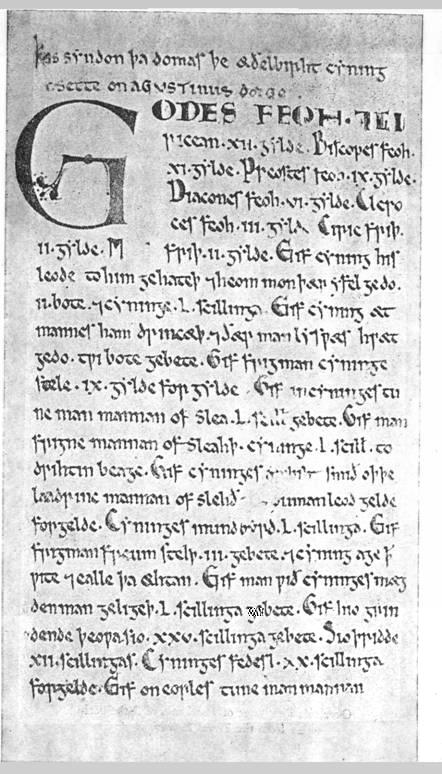 Þas syndon þa domas þe æðelbirht cyning
asette on AGVSTINUS dæge.
GODES FEOH. ⁊ CI
ricean. XII. gylde. Biscopes feoh.
XI. gylde. Preostes feoh. IX. gylde.
Diacones feoh. VI. gylde. Clero
ces feoh. III. gylde. Ciric friþ.
II. gylde. M friþ. II. gylde. Gif cyning his
leode to him gehateþ ⁊ heom mon þær yfel gedo.
II. bote. ⁊ cyninge. L. scillinga. Gif cyning æt
mannes ham drincæþ. ⁊ ðær man lysƿæs hƿæt
gedo. tƿi bote gebete. Gif frigman cyninge
stele. IX. gylde forgylde. Gif in cyninges tu
ne man mannan of slea. L. scill gebete. Gif man
frigne mannan of sleahþ. cyninge. L. scill. to
drihtin beage. Gif cyninges smið oþþe
laadrinc mannan of slehð leod gelde
forgelde. Cyninges mundbyrd. L. scillinga. Gif
frigman freum stelþ. III. gebete. ⁊ cyning age ꝥ
ƿite ⁊ ealle þa æhtan. Gif man ƿið cyninges mæg
denman geligeþ. L. scillinga gebete. Gif hio grin
dende þeoƿa sio. XXV. scillinga gebete. Sio þridde
XII. scillingas. Cyninges fedesl. XX. scillinga
forgelde. Gif on eorles tune man mannan